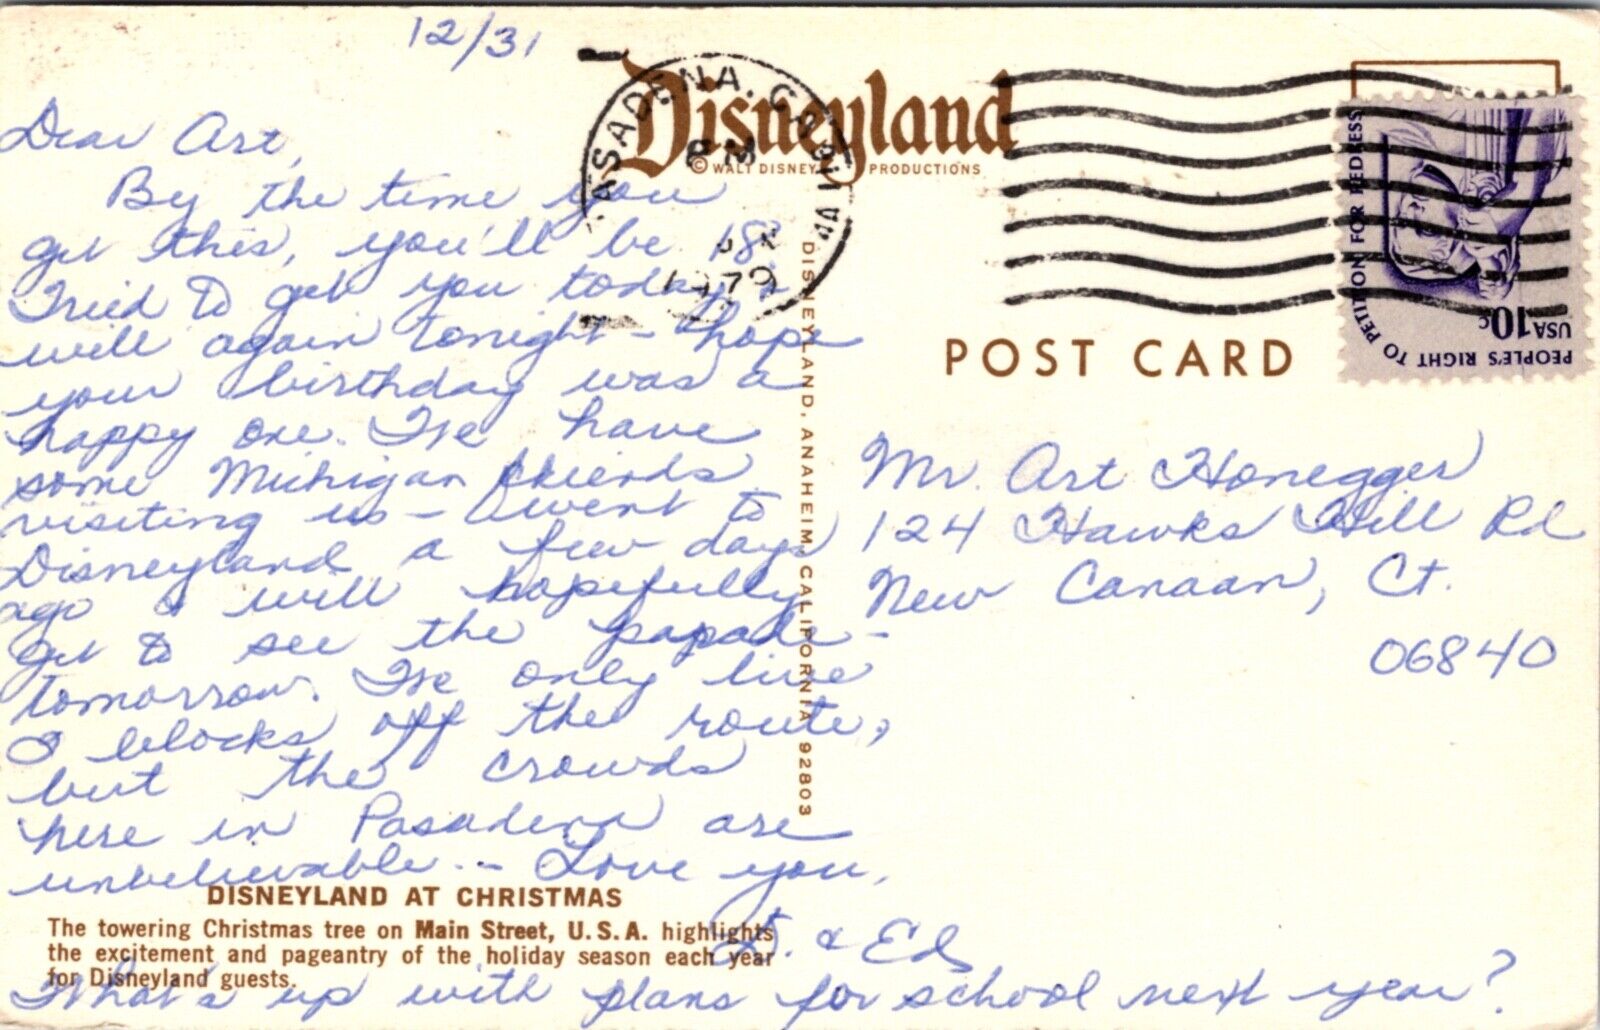 12/31
Dear Art,
By the time you
get this, you'll be 18!
Tried to get you today,
will again tonight – hope
your birthday was a
happy one. I've have
some Michigan friends
visiting us – went to
Disneyland a few days
ago & will hopefully
get to see the parade
tomorrow. I've only live
blocks off the route,
but the crowds
here in Pasadena are
unbelievable – Love you,
D. & Ed
What's up with plans for school next year?
DISNEYLAND AT CHRISTMAS
The towering Christmas tree on Main Street, U.S.A. highlights
the excitement and pageantry of the holiday season each year
for Disneyland guests.
DISNEYLAND, ANAHEIM, CALIFORNIA 92803
Disneyland
© WALT DISNEY PRODUCTIONS
PASADENA, CA 911
PM
1979
PEOPLE'S RIGHT TO PETITION FOR REDRESS
USA 10c
POST CARD
Mr. Art Honegger
124 Hawks Hill Rd
New Canaan, Ct.
06840